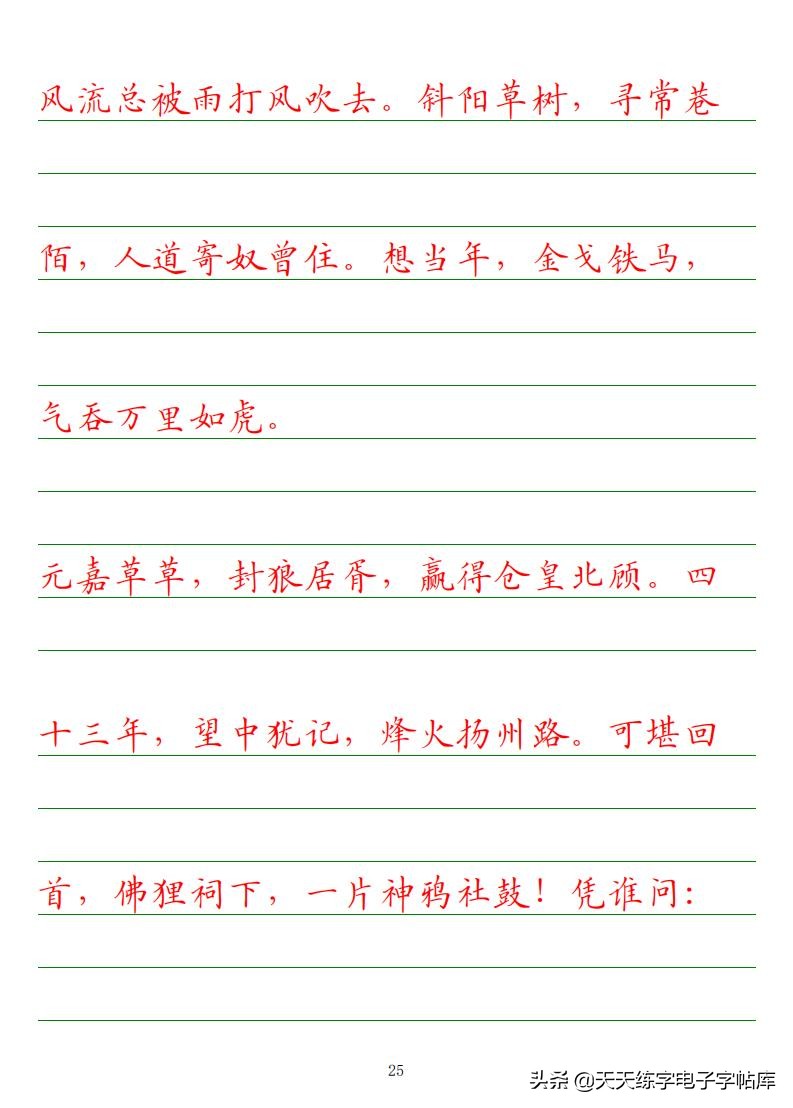 风流总被雨打风吹去。斜阳草树，寻常巷
陌，人道寄奴曾住。想当年，金戈铁马，
气吞万里如虎。
元嘉草草，封狼居胥，赢得仓皇北顾。四
十三年，望中犹记，烽火扬州路。可堪回
首，佛狸祠下，一片神鸦社鼓！凭谁问：
25
头条 @天天练字电子字帖库